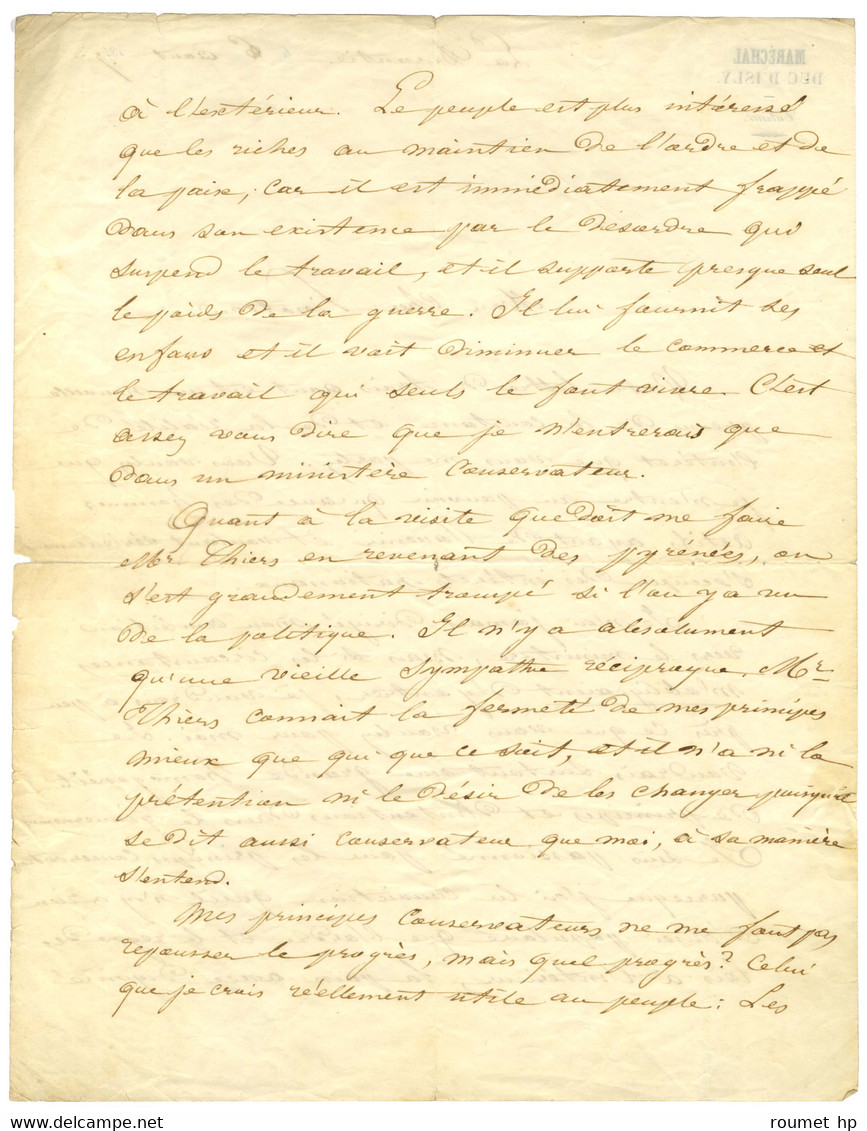 MARÉCHAL
DUC D'ISLY.
à l'extérieur. Le peuple est plus intéressé
que les riches au maintien de l'ordre et de
la paix; car il est immédiatement frappé
dans son existence par le désordre qui
suspend le travail, et il supporte presque seul
le poids de la guerre. Il lui fournit ses
enfans et il voit diminuer le commerce et
le travail qui seuls le font vivre. C'est
assez vous dire que je n'entrerais que
dans un ministère conservateur.
Quant à la visite que doit me faire
Mr. Thiers en revenant des pyrénées, on
s'est grandement trompé si l'on y a vu
de la politique. Il n'y a absolument
qu'une vieille sympathie réciproque. Mr.
Thiers connait la fermeté de mes principes
mieux que qui que ce soit, et il n'a ni la
prétention ni le désir de les changer puisqu'il
se dit aussi conservateur que moi, à sa manière
s'entend.
Mes principes conservateurs ne me font pas
repousser le progrès, mais quel progrès? Celui
que je crois réellement utile au peuple: Les
roumet hp